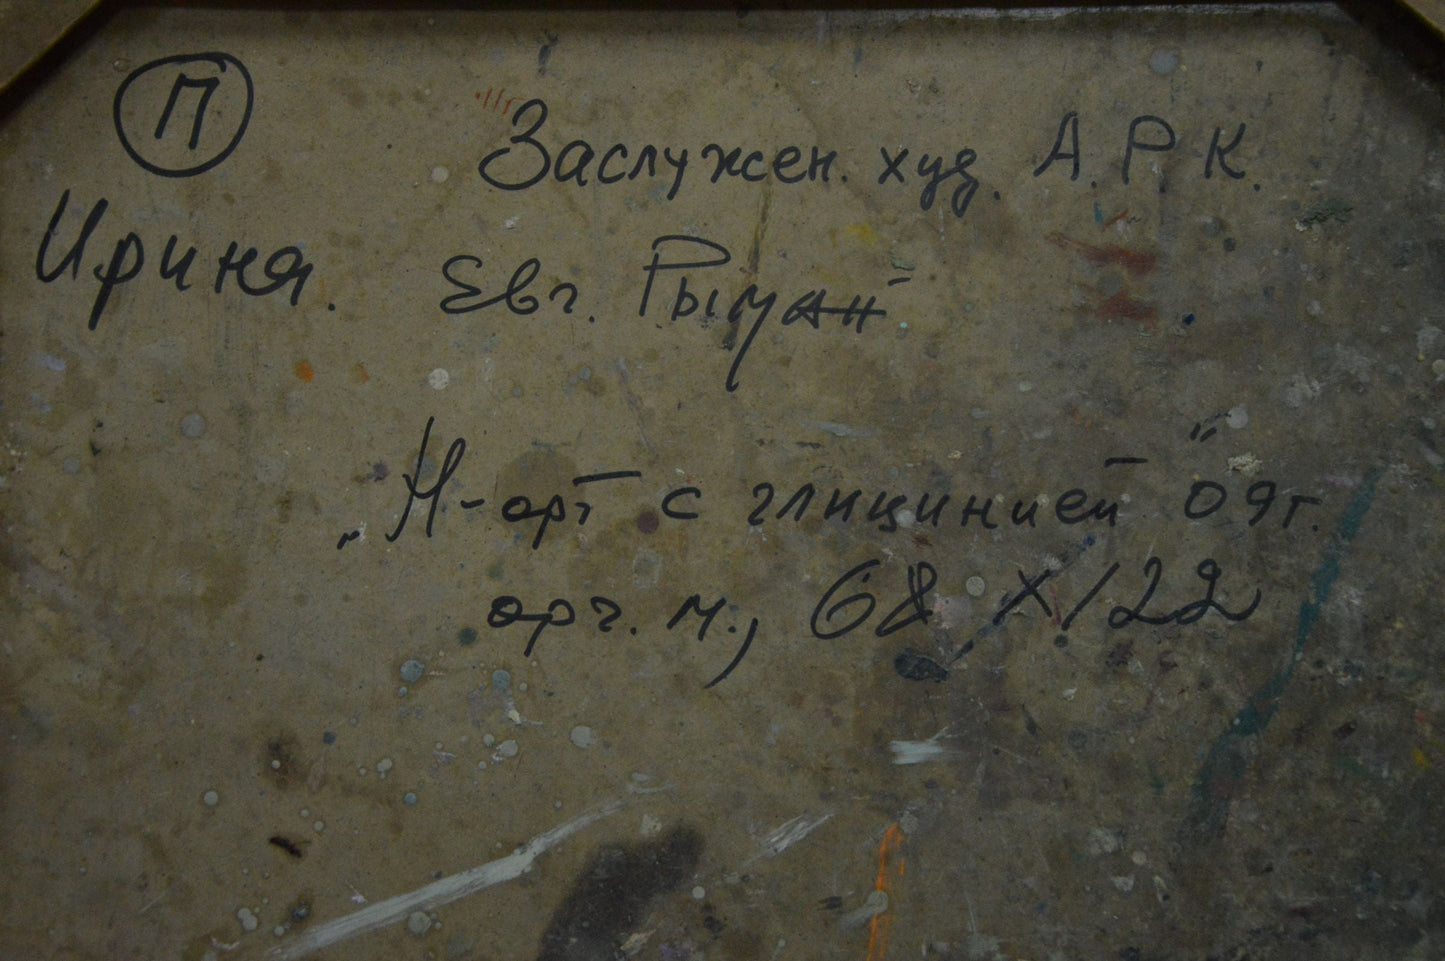 П
Заслужен. худ. А.Р.К.
Ирина. Евг.
„Н-орт с глицинией" 09г.
орг. м., 68 X 122